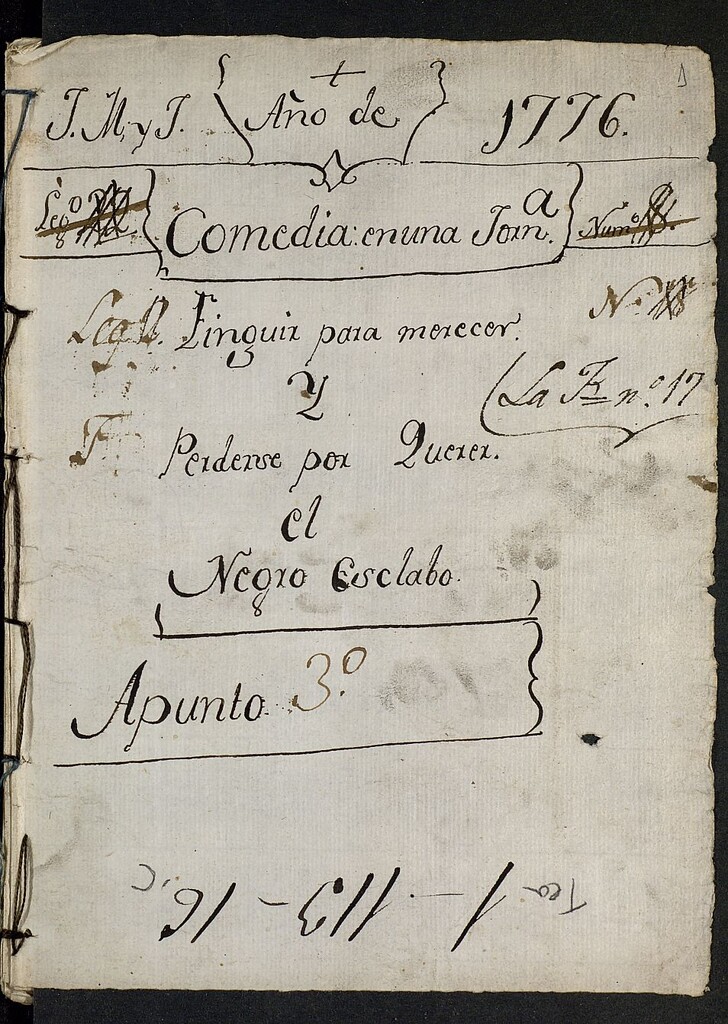 1
J. M, y J. Año de 1776.
Leg.º Comedia: en una Jorn.a Num.º
Leg. Finguir para merecer. N.
Y (La F. n.º 17
F. Perderse por Querer.
el
Negro Esclabo.
Apunto 3.º
Tea 1-113-16, C